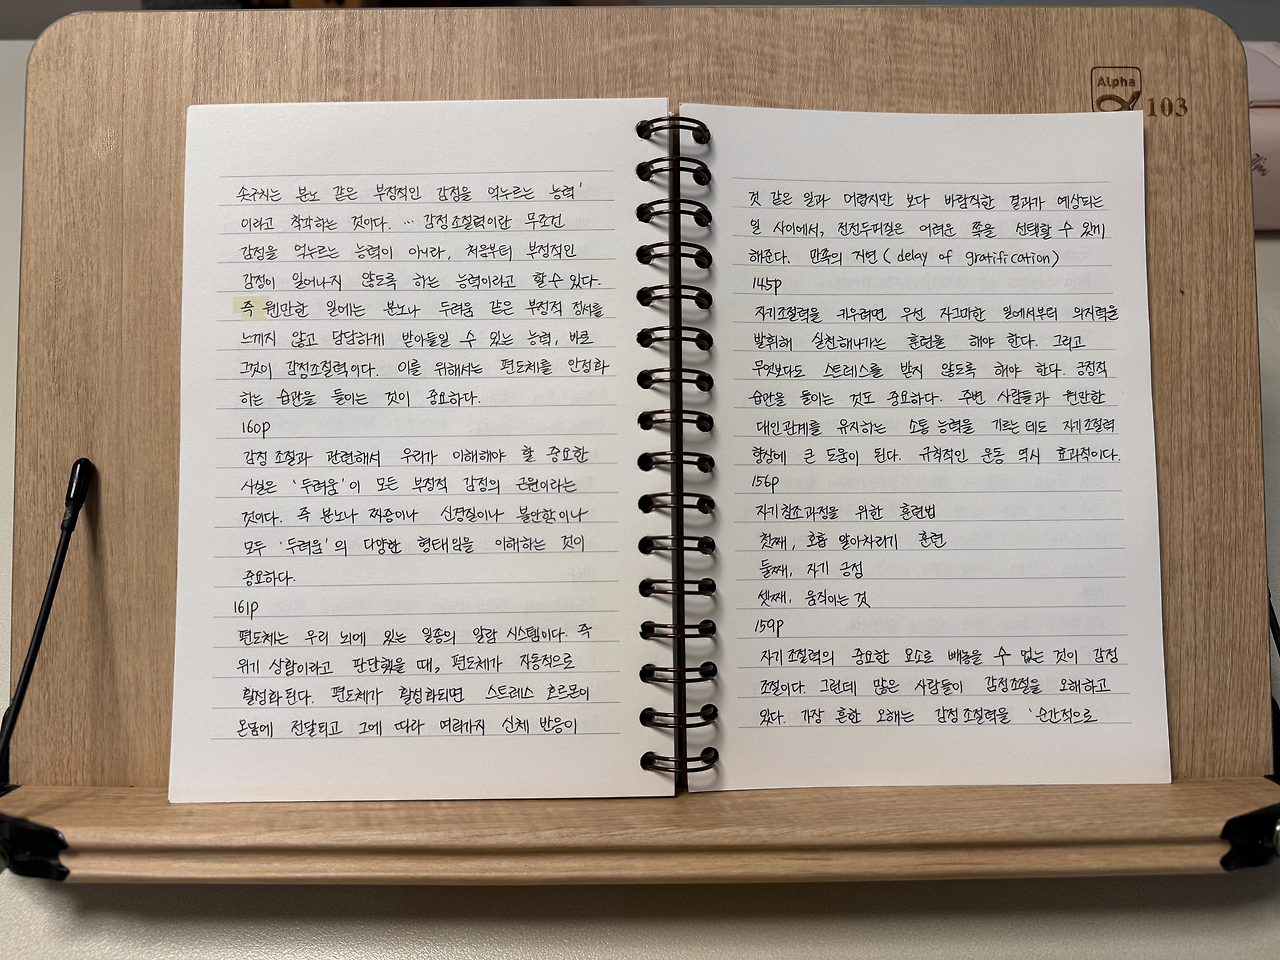 Alpha
103
솟구치는 분노 같은 부정적인 감정을 억누르는 능력'
이라고 착각하는 것이다. … 감정조절력이란 무조건
감정을 억누르는 능력이 아니라, 처음부터 부정적인
감정이 일어나지 않도록 하는 능력이라고 할 수 있다.
즉 웬만한 일에는 분노나 두려움 같은 부정적 정서를
느끼지 않고 담담하게 받아들일 수 있는 능력, 바로
그것이 감정조절력이다. 이를 위해서는 편도체를 안정화
하는 습관을 들이는 것이 중요하다.
160p
감정 조절과 관련해서 우리가 이해해야 할 중요한
사실은 '두려움'이 모든 부정적 감정의 근원이라는
것이다. 즉 분노나 짜증이나 신경질이나 불안함이나
모두 '두려움'의 다양한 형태임을 이해하는 것이
중요하다.
161p
편도체는 우리 뇌에 있는 일종의 알람 시스템이다. 즉
위기 상황이라고 판단했을 때, 편도체가 자동적으로
활성화 된다. 편도체가 활성화되면 스트레스 호르몬이
온몸에 전달되고 그에 따라 여러가지 신체 반응이
것 같은 일과 어렵지만 보다 바람직한 결과가 예상되는
일 사이에서, 전전두피질은 어려운 쪽을 선택할 수 있게
해준다. 만족의 지연 ( delay of gratification)
145p
자기조절력을 키우려면 우선 자그마한 일에서부터 의지력을
발휘해 실천해나가는 훈련을 해야 한다. 그리고
무엇보다도 스트레스를 받지 않도록 해야 한다. 긍정적
습관을 들이는 것도 중요하다. 주변 사람들과 원만한
대인관계를 유지하는 소통 능력을 기르는 데도 자기조절력
향상에 큰 도움이 된다. 규칙적인 운동 역시 효과적이다.
156p
자기참조과정을 위한 훈련법
첫째, 호흡 알아차리기 훈련
둘째, 자기 긍정
셋째, 움직이는 것
159p
자기조절력의 중요한 요소로 빼놓을 수 없는 것이 감정
조절이다. 그런데 많은 사람들이 감정조절을 오해하고
있다. 가장 흔한 오해는 감정 조절력을 '순간적으로